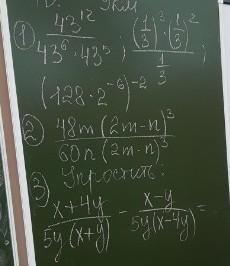 1) \frac{43^{12}}{43^6 \cdot 43^5} ; \frac{(\frac{1}{3})^3 \cdot (\frac{1}{3})^2}{\frac{1}{3}} ;
(128 \cdot 2^{-6})^{-2}
2) \frac{48m(2m-n)^3}{60n(2m-n)^3}
3) Упростить:
\frac{x+4y}{5y(x+y)} - \frac{x-y}{5y(x-4y)} =